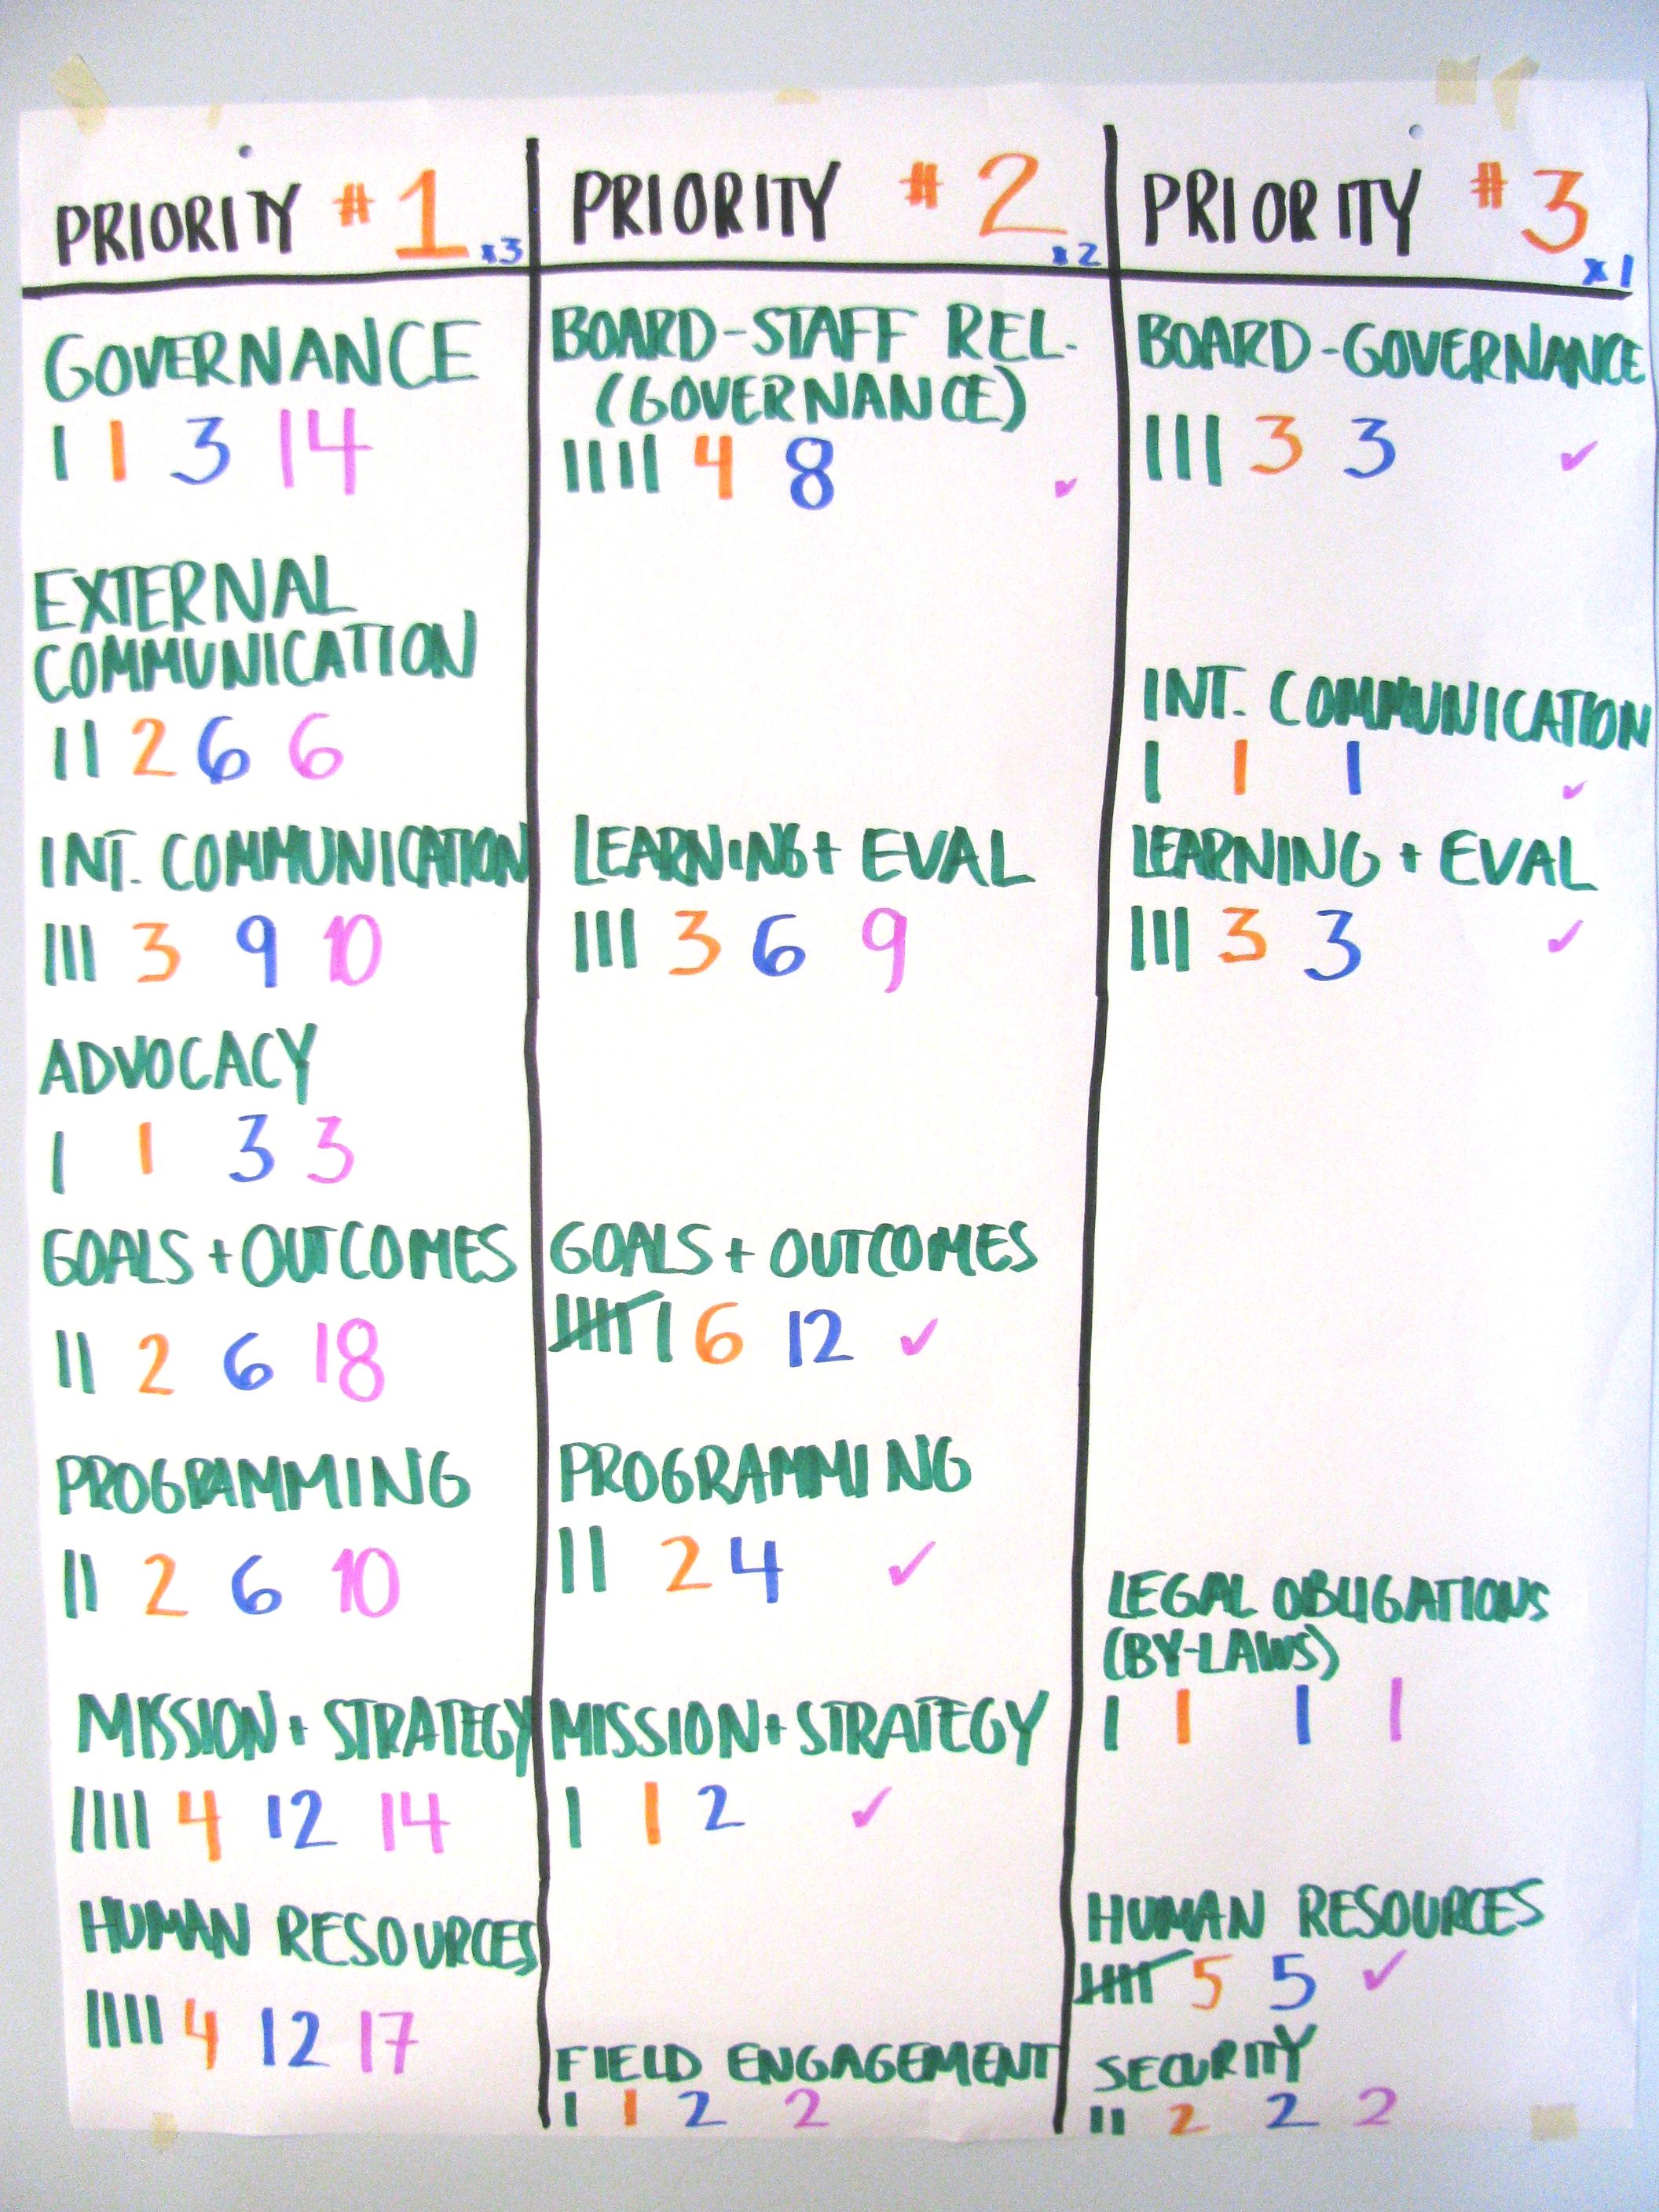 PRIORITY #1 x3
GOVERNANCE
I 1 3 14
EXTERNAL
COMMUNICATION
II 2 6 6
INT. COMMUNICATION
III 3 9 10
ADVOCACY
I 1 3 3
GOALS + OUTCOMES
II 2 6 18
PROGRAMMING
II 2 6 10
MISSION + STRATEGY
IIII 4 12 14
HUMAN RESOURCES
IIII 4 12 17
PRIORITY #2 x2
BOARD-STAFF REL.
(GOVERNANCE)
IIII 4 8 ✓
LEARNING + EVAL
III 3 6 9
GOALS + OUTCOMES
IIIII I 6 12 ✓
PROGRAMMING
II 2 4 ✓
MISSION + STRATEGY
I 1 2 ✓
FIELD ENGAGEMENT
I 1 2 2
PRIORITY #3 x1
BOARD-GOVERNANCE
III 3 3 ✓
INT. COMMUNICATION
I 1 1 ✓
LEARNING + EVAL
III 3 3 ✓
LEGAL OBLIGATIONS
(BY-LAWS)
I 1 1 1
HUMAN RESOURCES
IIIII 5 5 ✓
SECURITY
II 2 2 2